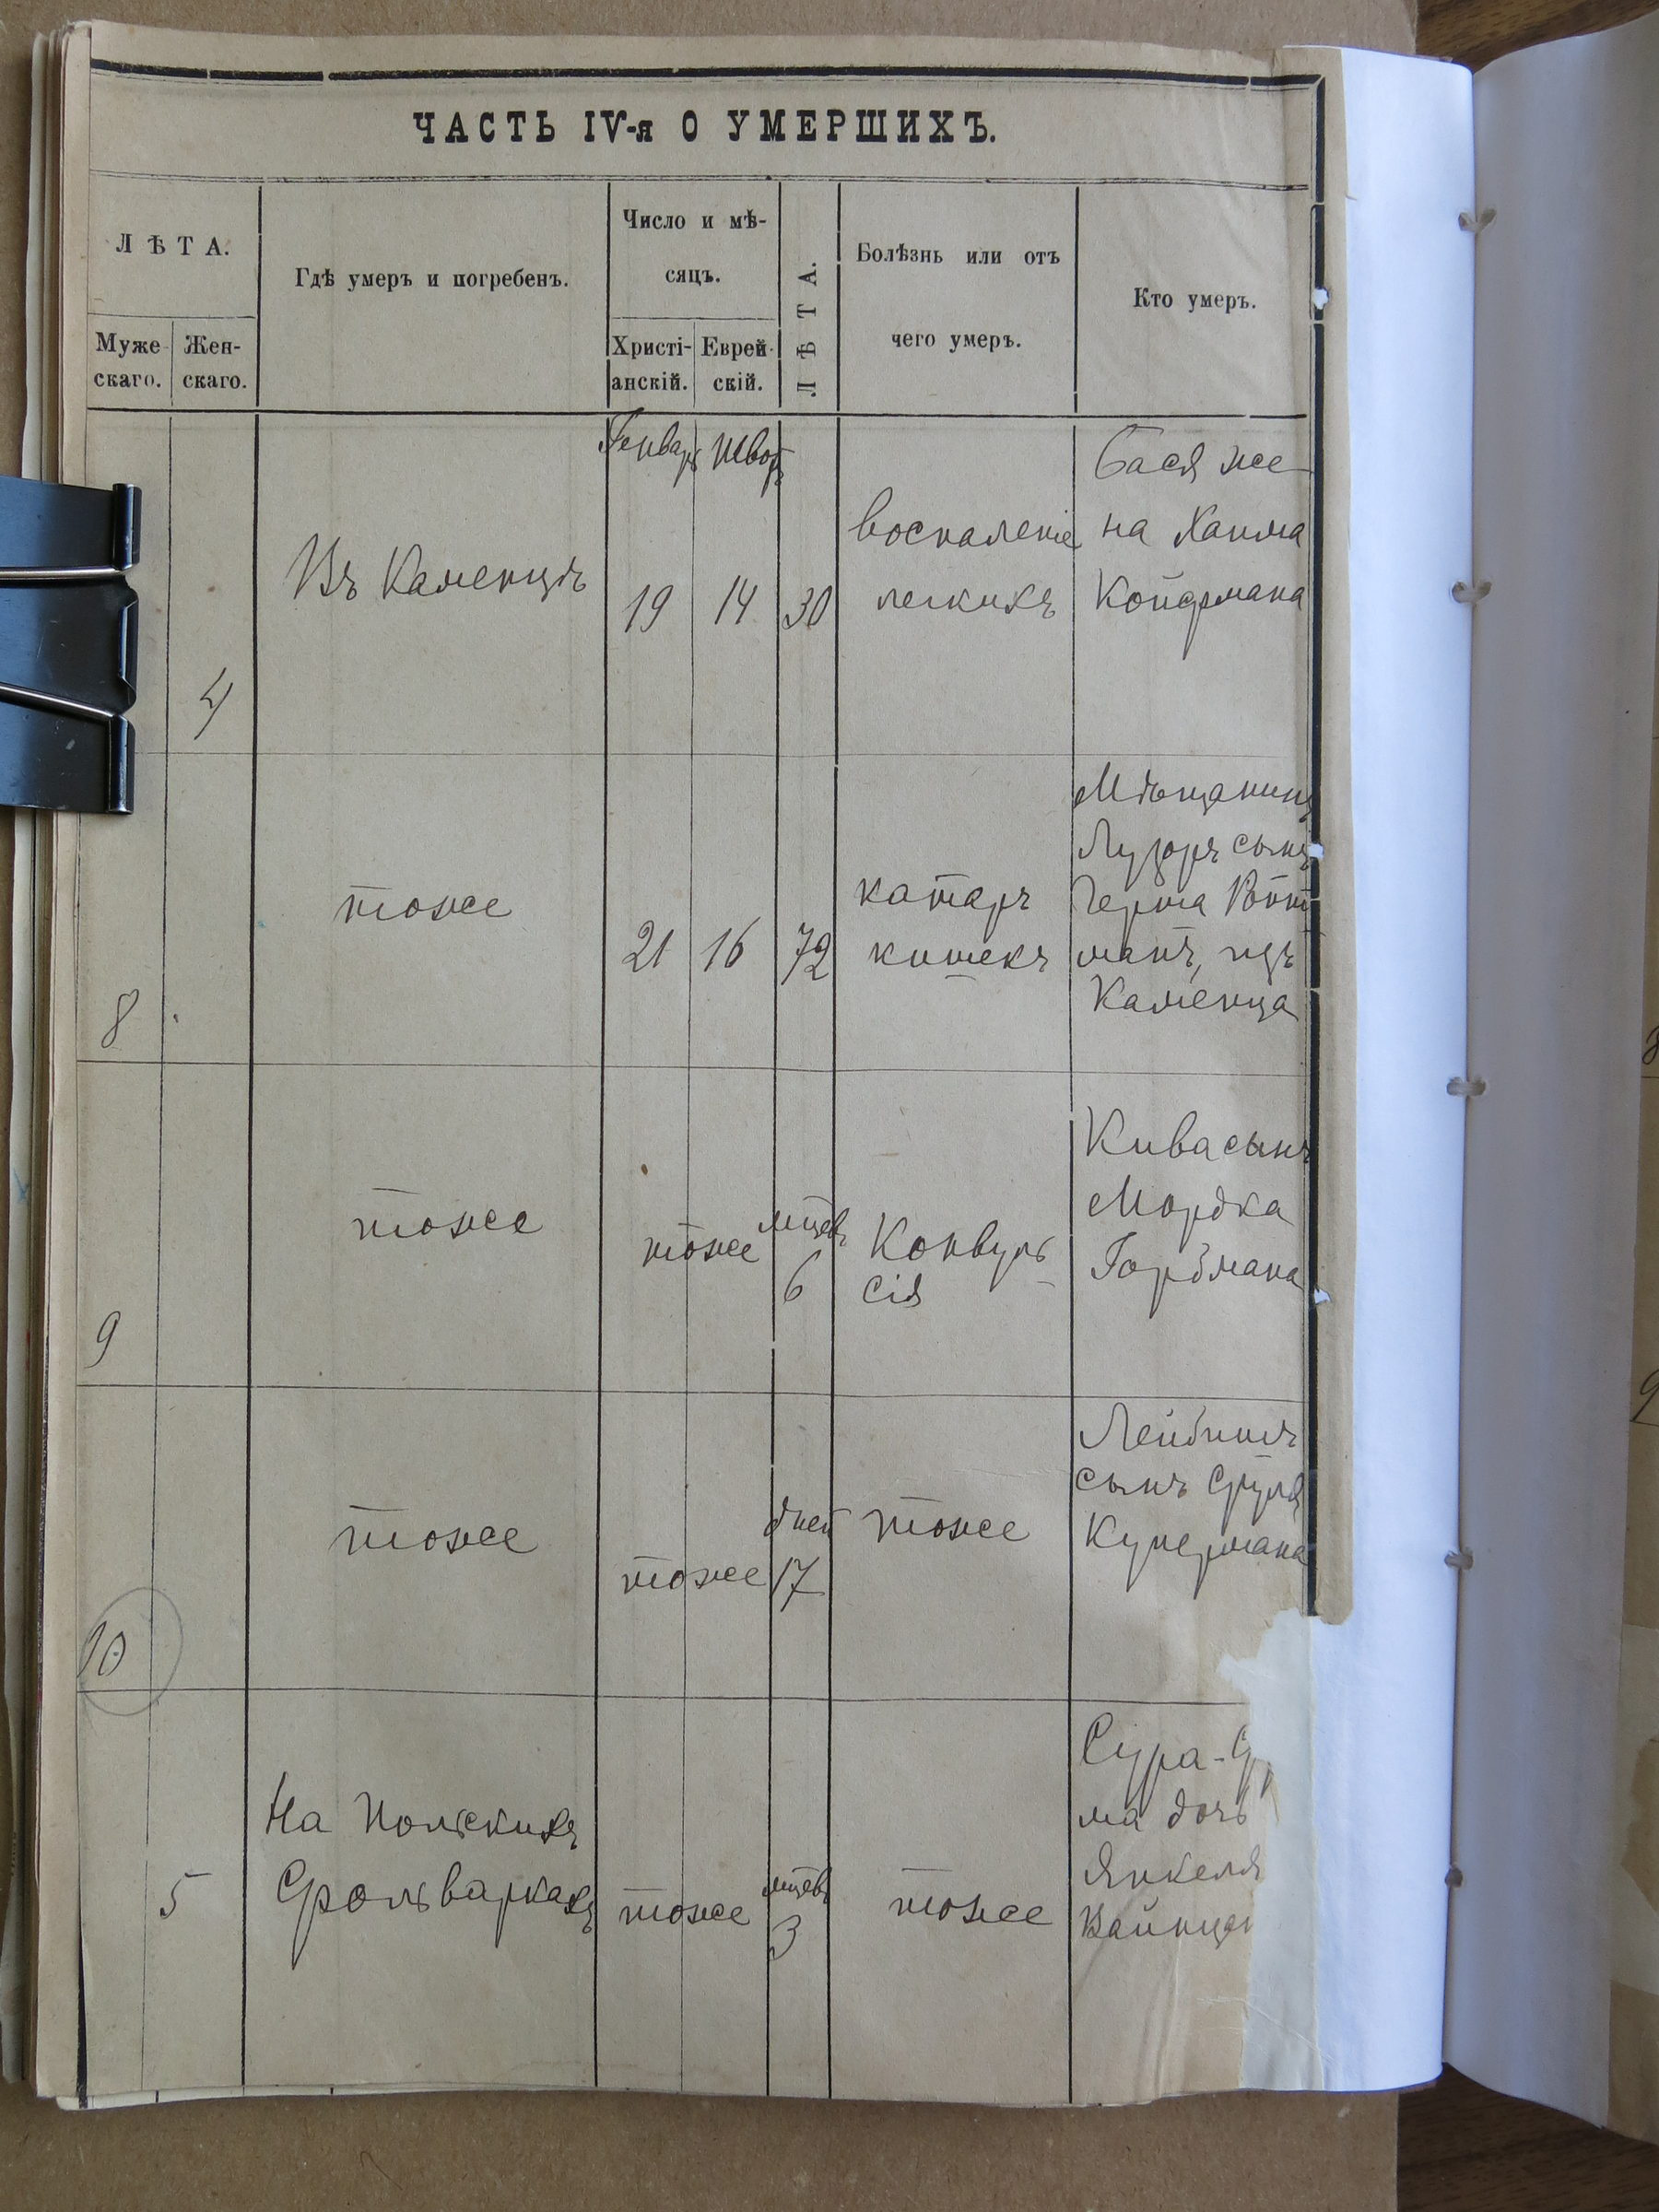 ЧАСТЬ IV-я О УМЕРШИХЪ.
ЛѢТА.
Муже-
скаго.
Жен-
скаго.
Гдѣ умеръ и погребенъ.
Число и мѣ-
сяцъ.
Христі-
анскій.
Еврей-
скій.
ЛѢТА.
Болѣзнь или отъ
чего умеръ.
Кто умеръ.
4
Въ Каменцѣ
Генварь
19
Шватъ
14
30
воспаленіе
легкихъ
Бася же-
на Хаима
Койфмана
8
тоже
21
16
72
катаръ
кишекъ
Мѣщанинъ
Лузоръ сынъ
Герша
манъ, изъ
Каменца
9
тоже
тоже
мцевъ
6
Конвуль-
сія
Кива сынъ
Мордка
Горбмана
10
тоже
тоже
дней
17
тоже
Лейбишъ
сынъ Сруля
Купермана
5
На Польскихъ
Фольваркахъ
тоже
мцевъ
3
тоже
Сура-
ма дочь
Янкеля